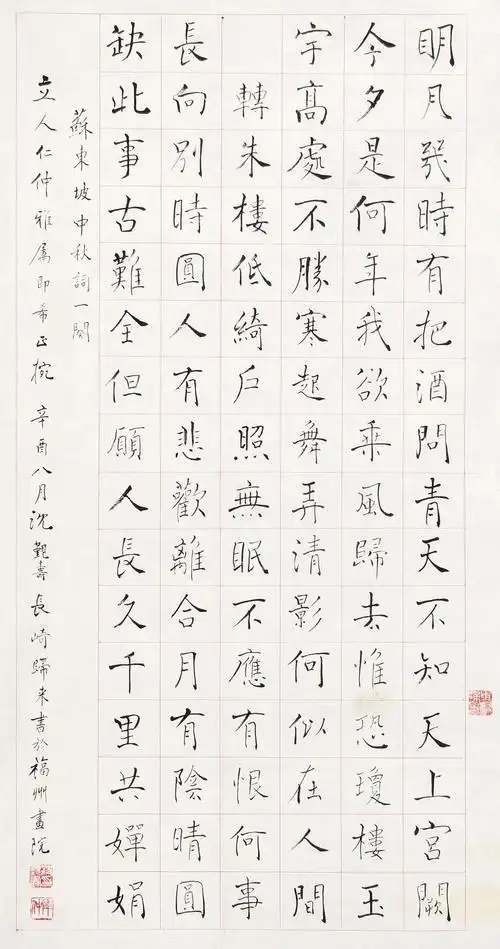 眀月幾時有把酒問青天不知天上宮闕
今夕是何年我欲乘風歸去惟恐瓊樓玉
宇高處不勝寒起舞弄清影何似在人間
轉朱樓低綺戶照無眠不應有恨何事
長向別時圓人有悲歡離合月有陰晴圓
缺此事古難全但願人長久千里共嬋娟
蘇東坡中秋詞一闋
立人仁仲雅屬即希正捥 辛酉八月沈覲壽長崎歸來書於福州畫院